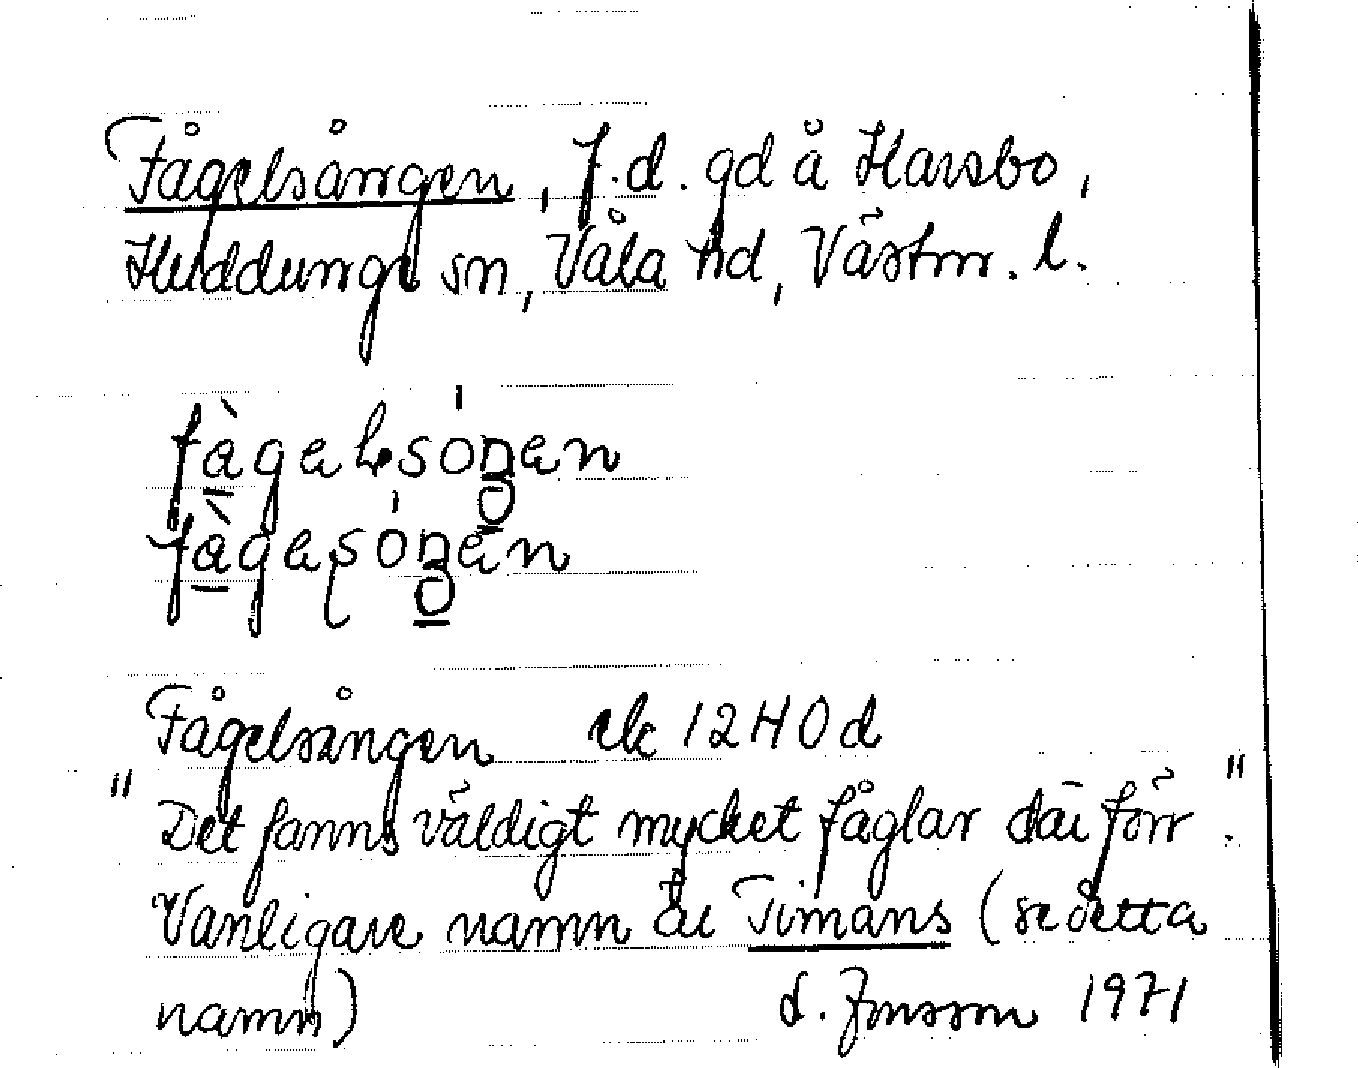 Fågelsången, f.d. gd å Harsbo,
Huddunge sn, Våla hd, Västm. l.
Fågelsången ek 12H0d
"Det fanns väldigt mycket fåglar där förr."
Vanligare namn är Timans (se detta
namn) 1971